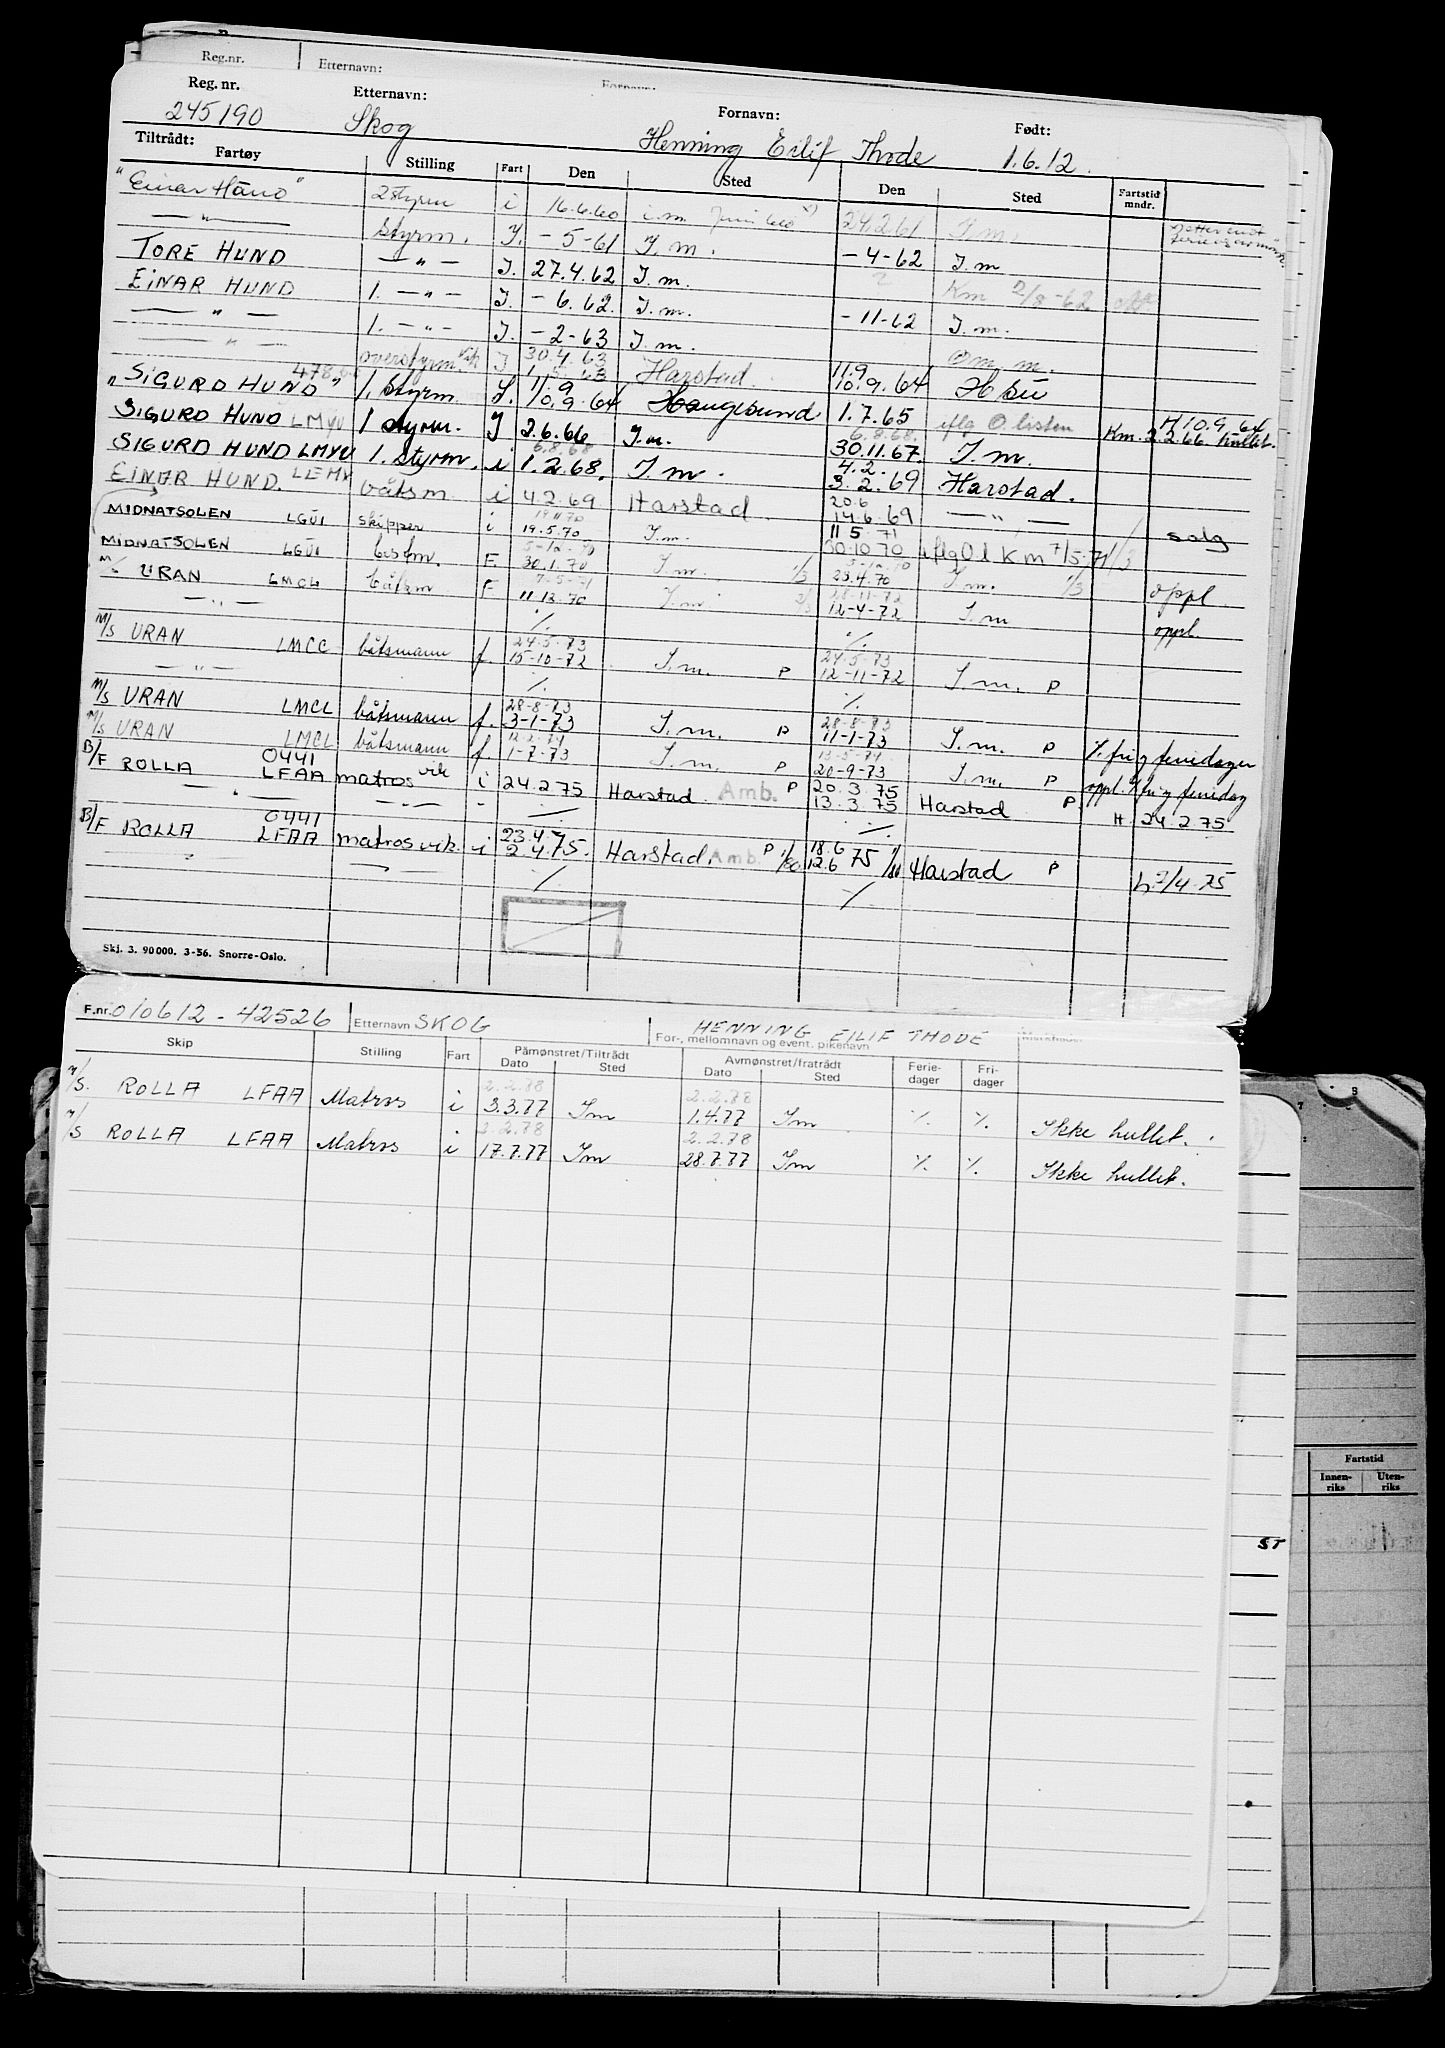 Reg.nr. Etternavn: Fornavn:
Reg. nr. Etternavn: Fornavn: Født:
245190 Skog Henning Eilif Thode 1.6.12.
Tiltrådt:
Fartøy Stilling Fart Den Sted Den Sted Fartstid mndr.
"Einar Hund" 2 styrm i 16.6.60 i.m. Juni 60 x) 24.2.61 I.m.
— " — Styrm. I. - 5 - 61 I.m. - 4 - 62 I.m
TORE HUND — " — I. 27.4.62 I.m. Km 2/8-62
EINAR HUND 1. — " — I. - 6. 62. I.m. - 11 - 62 I.m.
— " — 1. — " — I. - 2 - 63 I.m.
— " — overstyrm. vik I 30.4.63 Harstad 11.9
"SIGURD HUND" 1. Styrm. I. 11.9 10.9.64 Haugesund 10.9.64 H
SIGURD HUND LMYU 1 styrm. I 2.6.66 I.m. 1.7.65 iflg O.listen Km. 2.2.66 hullet.
H 10.9.64
SIGURD HUND LMYU 1. Styrm. i 6.8.68 1.2.68. I.m. 6.8.68. 30.11.67. I.m.
EINAR HUND. LEMV båtsm i 4.2.69 Harstad 4.2. 3.2.69 Harstad.
MIDNATSOLEN LGUI skipper i 19.5.70 I.m. 20.6 14.6.69 — " — salg
MIDNATSOLEN LGUI bestm. F 5-12-70 30.1.70 I.m. 1/3 11 5. 71 30.10 70 iflg O.l Km 7/5.71
M/S URAN LMCL båtsm F 7-5-71 11.12.70 I.m. 23.4.70 I.m. 1/3 oppl.
— " — ./. 28-11-72 12-4-72 I.m oppl
M/S URAN LMCC båtsmann f. 24.5.73 15-10-72 I.m. P 24.5.73 12-11-72 I.m. P
— " — ./. ./.
M/S URAN LMCL båtsmann f. 28-8-73 3-1-73 I.m. P 28-8-73 11-1-73 I.m. P ./. fri g feriedager
M/S URAN LMCL båtsmann f. 12-2-74 1-7-73 I.m. P 13-5-74 20-9-73 I.m. P oppl. ./. fri g feriedag
B/F ROLLA 0441 LFAA matros vik i 24.2 75 Harstad. Amb. P 20.3.75 13.3.75 Harstad P. H. 24.2.75
— " — — " — - ./. ./.
B/F ROLLA 0441 LFAA matros vik. i 23.4.75 2.4.75. Harstad. Amb. P 18.6 12.6 75 Harstad P h 2/4.75
— " — ./. ./.
Skj. 3. 90 000. 3-56. Snorre-Oslo.
F.nr. 010612 - 42526 Etternavn SKOG HENNING EILIF THODE
For-, mellomnavn og event. pikenavn
Skip Stilling Fart Påmønstret/Tiltrådt Avmønstret/fratrådt Ferie-dager Fri-dager
Dato Sted Dato Sted
2.2.78 2.2.78
M/S. ROLLA LFAA Matros i 3.3.77 Im 1.4.77 Im ./. ./. Ikke hullet.
2.2.78 2.2.78
M/S ROLLA LFAA Matros i 17.7.77 Im 28.7.77 Im ./. ./. Ikke hullet.
Fartstid
Innen-riks Uten-riks
ST